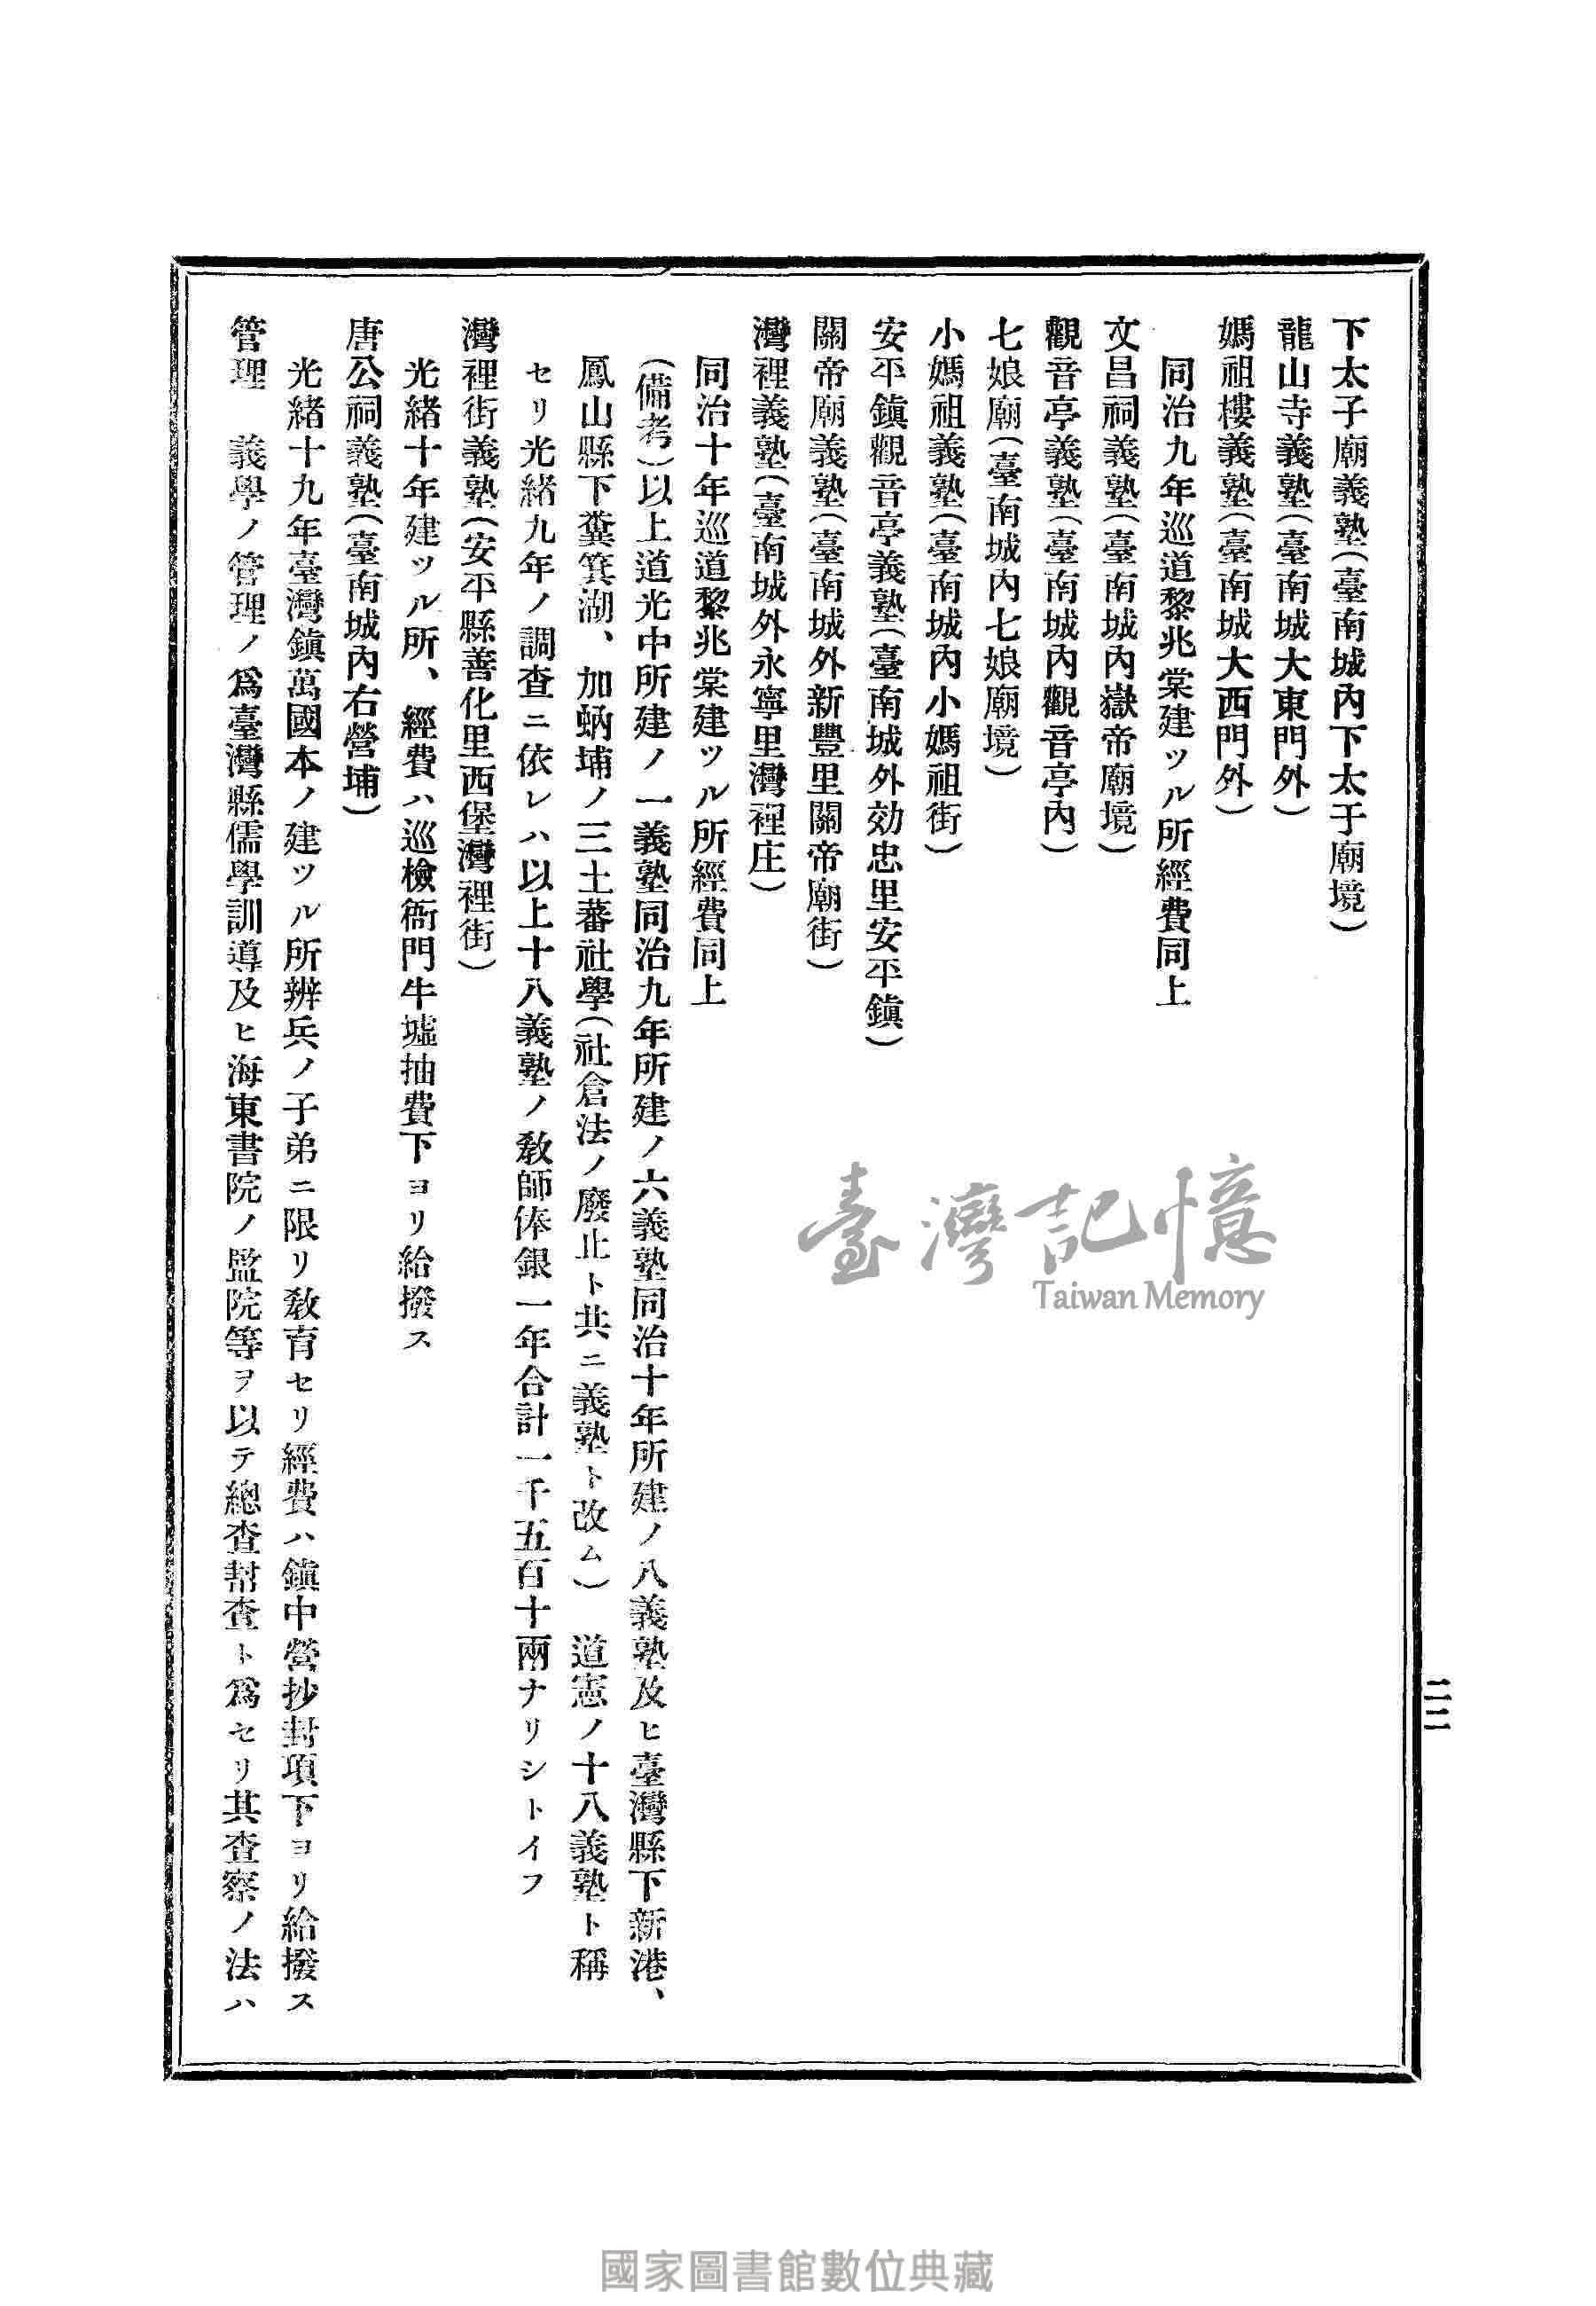 下太子廟義塾(臺南城內下太子廟境)
龍山寺義塾(臺南城大東門外)
媽祖樓義塾(臺南城大西門外)
同治九年巡道黎兆棠建ツル所經費同上
文昌祠義塾(臺南城內嶽帝廟境)
觀音亭義塾(臺南城內觀音亭內)
七娘廟(臺南城內七娘廟境)
小媽祖義塾(臺南城內小媽祖街)
安平鎮觀音亭義塾(臺南城外効忠里安平鎮)
關帝廟義塾(臺南城外新豐里關帝廟街)
灣裡義塾(臺南城外永寧里灣裡庄)
同治十年巡道黎兆棠建ツル所經費同上
(備考)以上道光中所建ノ一義塾同治九年所建ノ六義塾同治十年所建ノ八義塾及ヒ臺灣縣下新港、
鳳山縣下糞箕湖、加蚋埔ノ三土蕃社學(社倉法ノ廢止ト共ニ義塾ト改ム) 道憲ノ十八義塾ト稱
セリ光緒九年ノ調查ニ依レハ以上十八義塾ノ敎師俸銀一年合計一千五百十兩ナリシトイフ
灣裡街義塾(安平縣善化里西堡灣裡街)
光緒十年建ツル所、經費ハ巡檢衙門牛墟抽費下ヨリ給撥ス
唐公祠義塾(臺南城內右營埔)
光緒十九年臺灣鎮萬國本ノ建ツル所辨兵ノ子弟ニ限リ敎育セリ經費ハ鎮中營抄封項下ヨリ給撥ス
管理 義學ノ管理ノ爲臺灣縣儒學訓導及ヒ海東書院ノ監院等ヲ以テ總查幇查ト爲セリ其查察ノ法ハ
二二
臺灣記憶
Taiwan Memory
國家圖書館數位典藏